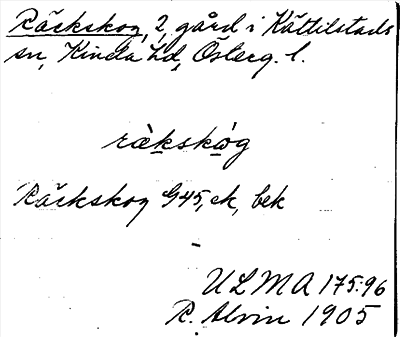 Räckskog, 2, gård i Kättilstads
sn, Kinda hd, Österg. l.
ràkskó̱g
Räckskog G45, ek, bek
ULMA 175:96
R. Alvin 1905